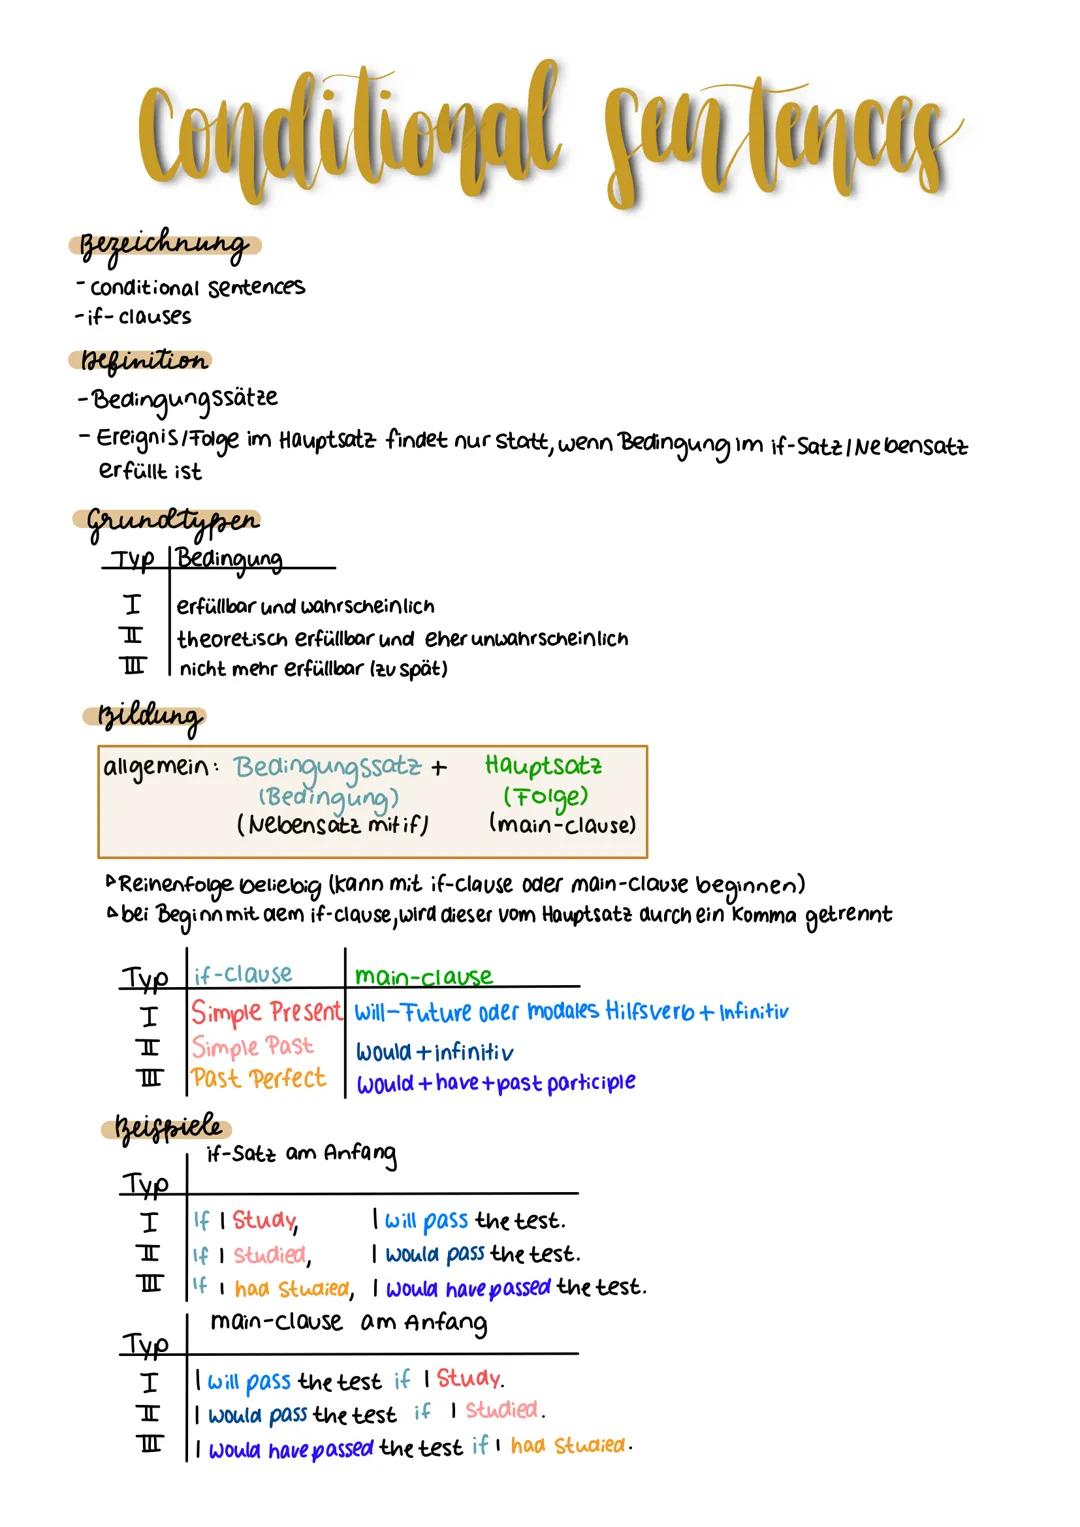 Conditional Sentences
Bezeichnung
- conditional sentences
- if-clauses
Definition
- Bedingungssätze
- Ereignis/Folge im Hauptsatz findet nur statt, wenn Bedingung im if-Satz/Nebensatz
erfüllt ist
Grundtypen
Typ Bedingung
I erfüllbar und wahrscheinlich
II theoretisch erfüllbar und eher unwahrscheinlich
III nicht mehr erfüllbar (zu spät)
Bildung
allgemein: Bedingungssatz + Hauptsatz
(Bedingung) (Folge)
(Nebensatz mit if) (main-clause)
▷ Reihenfolge beliebig (kann mit if-clause oder main-clause beginnen)
▷ bei Beginn mit dem if-clause, wird dieser vom Hauptsatz durch ein Komma getrennt
Typ if-clause main-clause
I Simple Present will-Future oder modales Hilfsverb + Infinitiv
II Simple Past would + infinitiv
III Past Perfect would + have + past participle
Beispiele
if-Satz am Anfang
Typ
I If I study, I will pass the test.
II If I studied, I would pass the test.
III If I had studied, I would have passed the test.
main-clause am Anfang
Typ
I I will pass the test if I study.
II I would pass the test if I studied.
III I would have passed the test if I had studied.